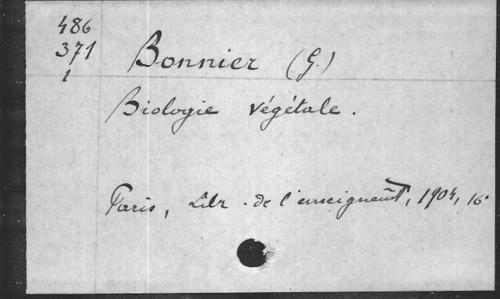 486
371
1
Bonnier (G.)
Biologie végétale.
Paris, Libr. de l'enseignent, 1904, 16°